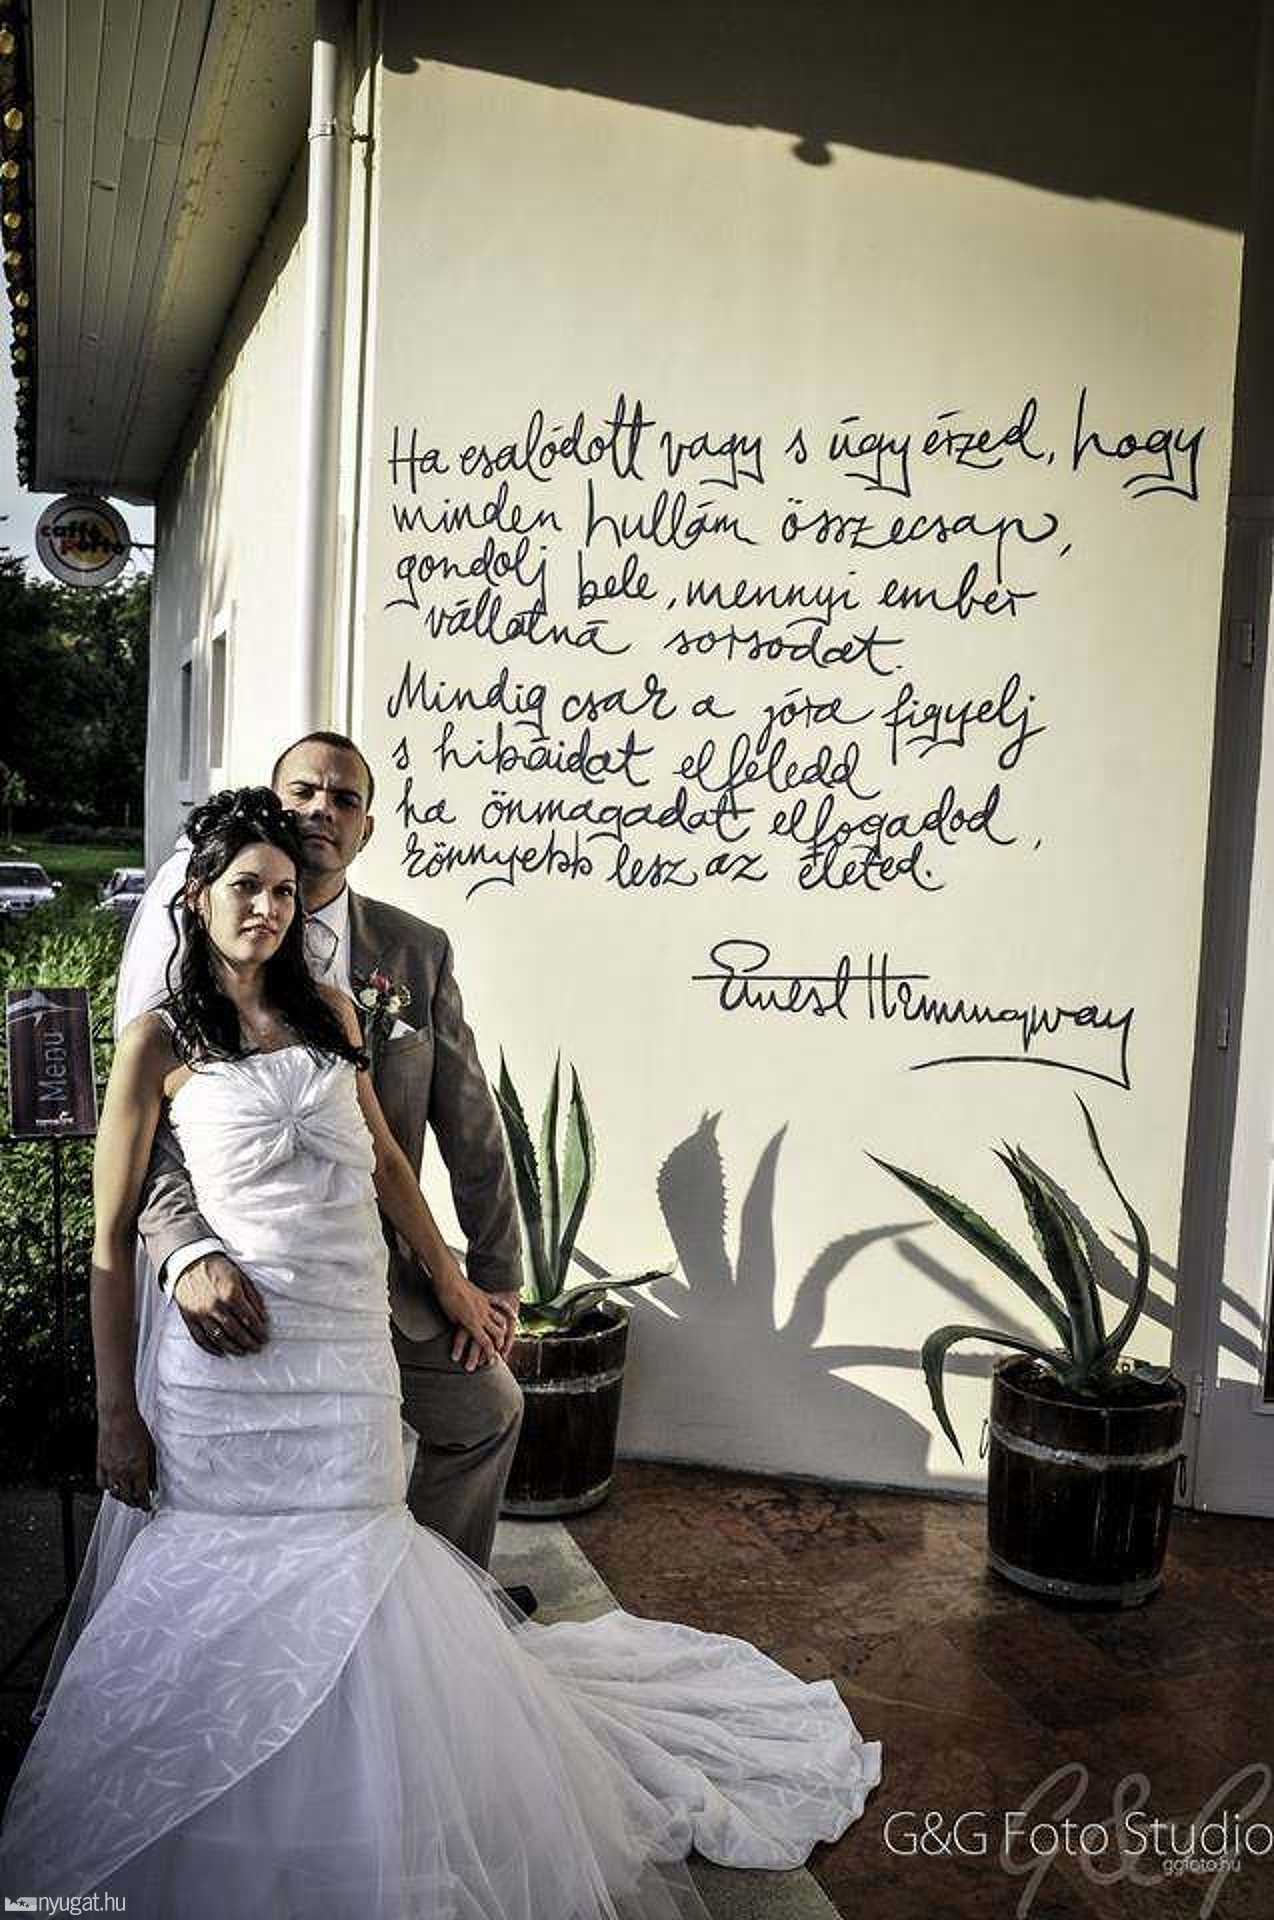 Ha csalódott vagy s úgy érzed, hogy
minden hullám összecsap,
gondolj bele, mennyi ember
vállalná sorsodat.
Mindig csak a jóra figyelj
s hibáidat elfeledd
ha önmagadat elfogadod,
könnyebb lesz az életed.
Ernest Hemingway
caffè
Menu
G&G Foto Studio
ggfoto.hu
G&G
nyugat.hu